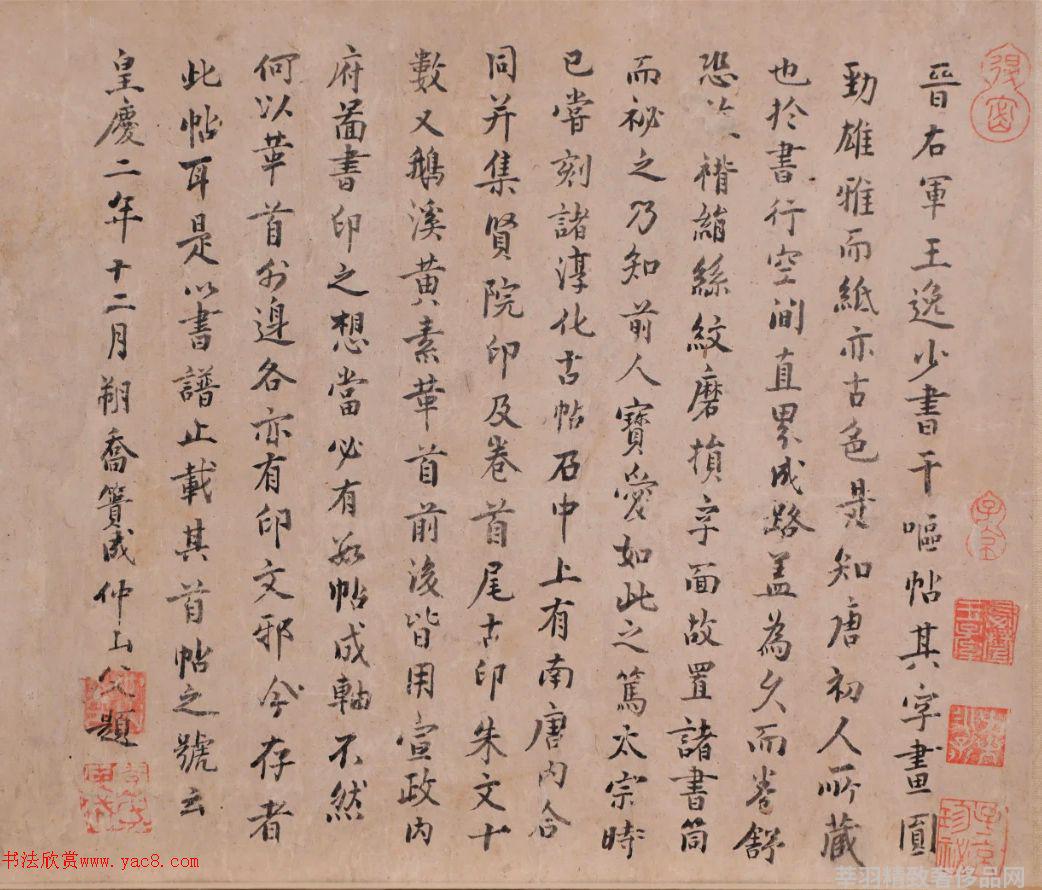 晉右軍王逸少書干嘔帖其字畫圓
勁雄雅而紙亦古色是知唐初人所藏
也於書行空間直累成路蓋為久而卷舒
恐 褙絹絲紋磨損字面故置諸書筒
而祕之乃知前人寶愛如此之篤太宗時
已嘗刻諸淳化古帖石中上有南唐內合
同并集賢院印及卷首尾古印朱文十
數又鵝溪黃素萆首前後皆用宣政內
府畵書印之想當必有數帖成軸不然
何以萆首外邊各亦有印文邪今存者
此帖耳是以書譜止載其首帖之號云
皇慶二年十二月朔喬簣成仲山父題
书法欣赏www.yac8.com
莘羽精致奢侈品网